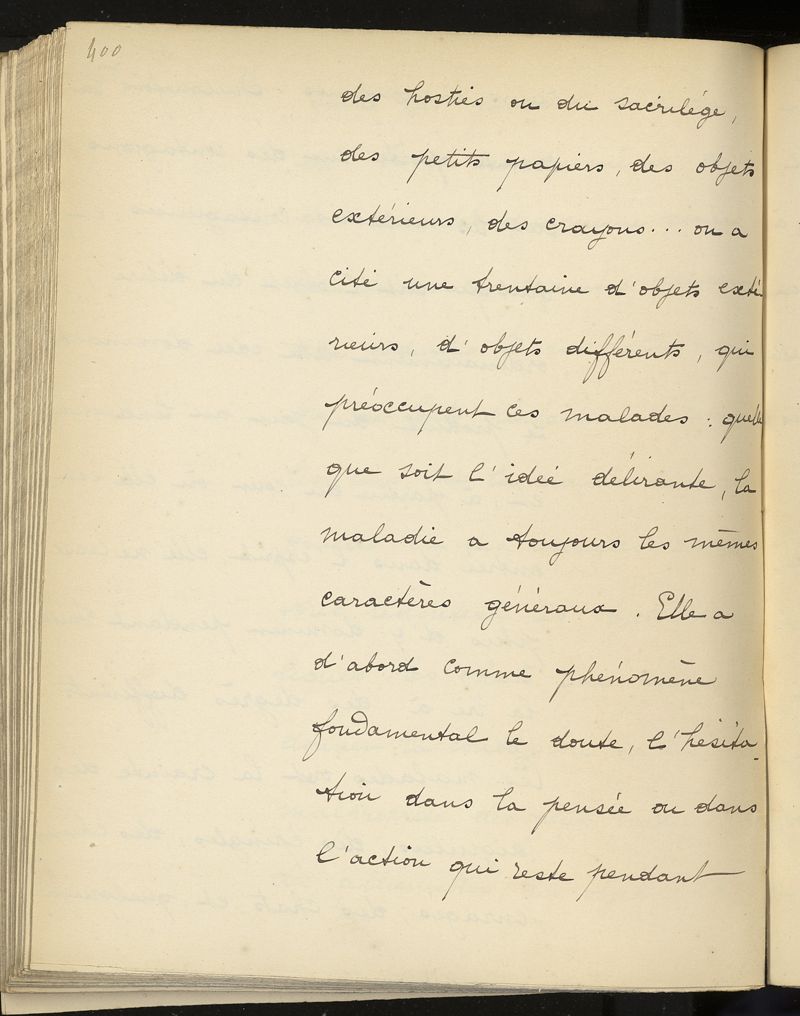 400
des hosties ou du sacrilège,
des petits papiers, des objets
extérieurs, des crayons... on a
cité une trentaine d'objets exté-
rieurs, d'objets différents, qui
préoccupent ces malades : quelle
que soit l'idée délirante, la
maladie a toujours les mêmes
caractères généraux. Elle a
d'abord comme phénomène
fondamental le doute, l'hésita-
tion dans la pensée ou dans
l'action qui reste pendant